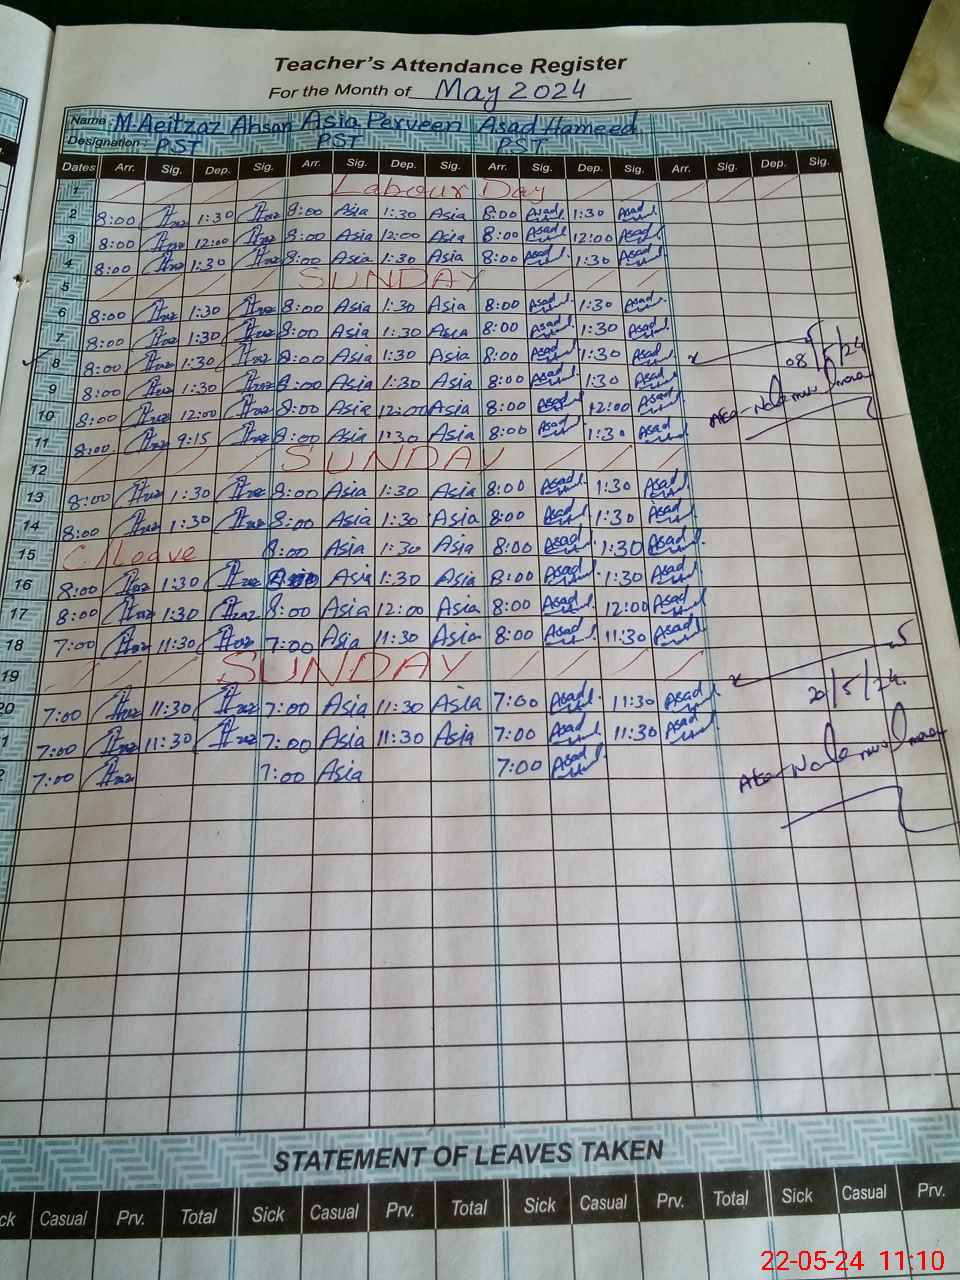 Teacher's Attendance Register
For the Month of May 2024
Name: M. Aeitzaz Ahsan Asia Perveen Asad Hameed
Designation: PST PST PST
Dates Arr. Sig. Dep. Sig. Arr. Sig. Dep. Sig. Arr. Sig. Dep. Sig. Arr. Sig. Dep. Sig.
1 Labour Day
2 8:00 1:30 8:00 Asia 1:30 Asia 8:00 Asad 1:30 Asad
3 8:00 12:00 8:00 Asia 12:00 Asia 8:00 Asad 12:00 Asad
4 8:00 1:30 8:00 Asia 1:30 Asia 8:00 Asad 1:30 Asad
5 SUNDAY
6 8:00 1:30 8:00 Asia 1:30 Asia 8:00 Asad 1:30 Asad
7 8:00 1:30 8:00 Asia 1:30 Asia 8:00 Asad 1:30 Asad
8 8:00 1:30 8:00 Asia 1:30 Asia 8:00 Asad 1:30 Asad 08/5/24
9 8:00 1:30 8:00 Asia 1:30 Asia 8:00 Asad 1:30 Asad
10 8:00 12:00 8:00 Asia 12:00 Asia 8:00 Asad 12:00 Asad
11 8:00 9:15 8:00 Asia 1:30 Asia 8:00 Asad 1:30 Asad
12 SUNDAY
13 8:00 1:30 8:00 Asia 1:30 Asia 8:00 Asad 1:30 Asad
14 8:00 1:30 8:00 Asia 1:30 Asia 8:00 Asad 1:30 Asad
15 C. Leave 8:00 Asia 1:30 Asia 8:00 Asad 1:30 Asad
16 8:00 1:30 Asia 1:30 Asia 8:00 Asad 1:30 Asad
17 8:00 1:30 8:00 Asia 12:00 Asia 8:00 Asad 12:00 Asad
18 7:00 11:30 7:00 Asia 11:30 Asia 8:00 Asad 11:30 Asad
19 SUNDAY
20 7:00 11:30 7:00 Asia 11:30 Asia 7:00 Asad 11:30 Asad 20/5/24.
1 7:00 11:30 7:00 Asia 11:30 Asia 7:00 Asad 11:30 Asad
2 7:00 7:00 Asia 7:00 Asad
STATEMENT OF LEAVES TAKEN
ck Casual Prv. Total Sick Casual Prv. Total Sick Casual Prv.
22-05-24 11:10